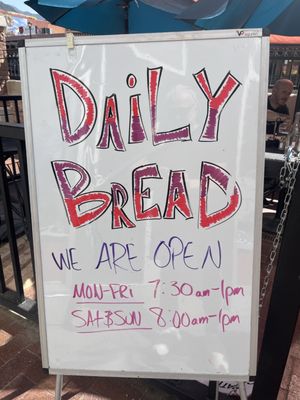 DAiLY
BREAD
WE ARE OPEN
MON-FRI 7:30am-1pm
SAT & SUN 8:00am-1pm